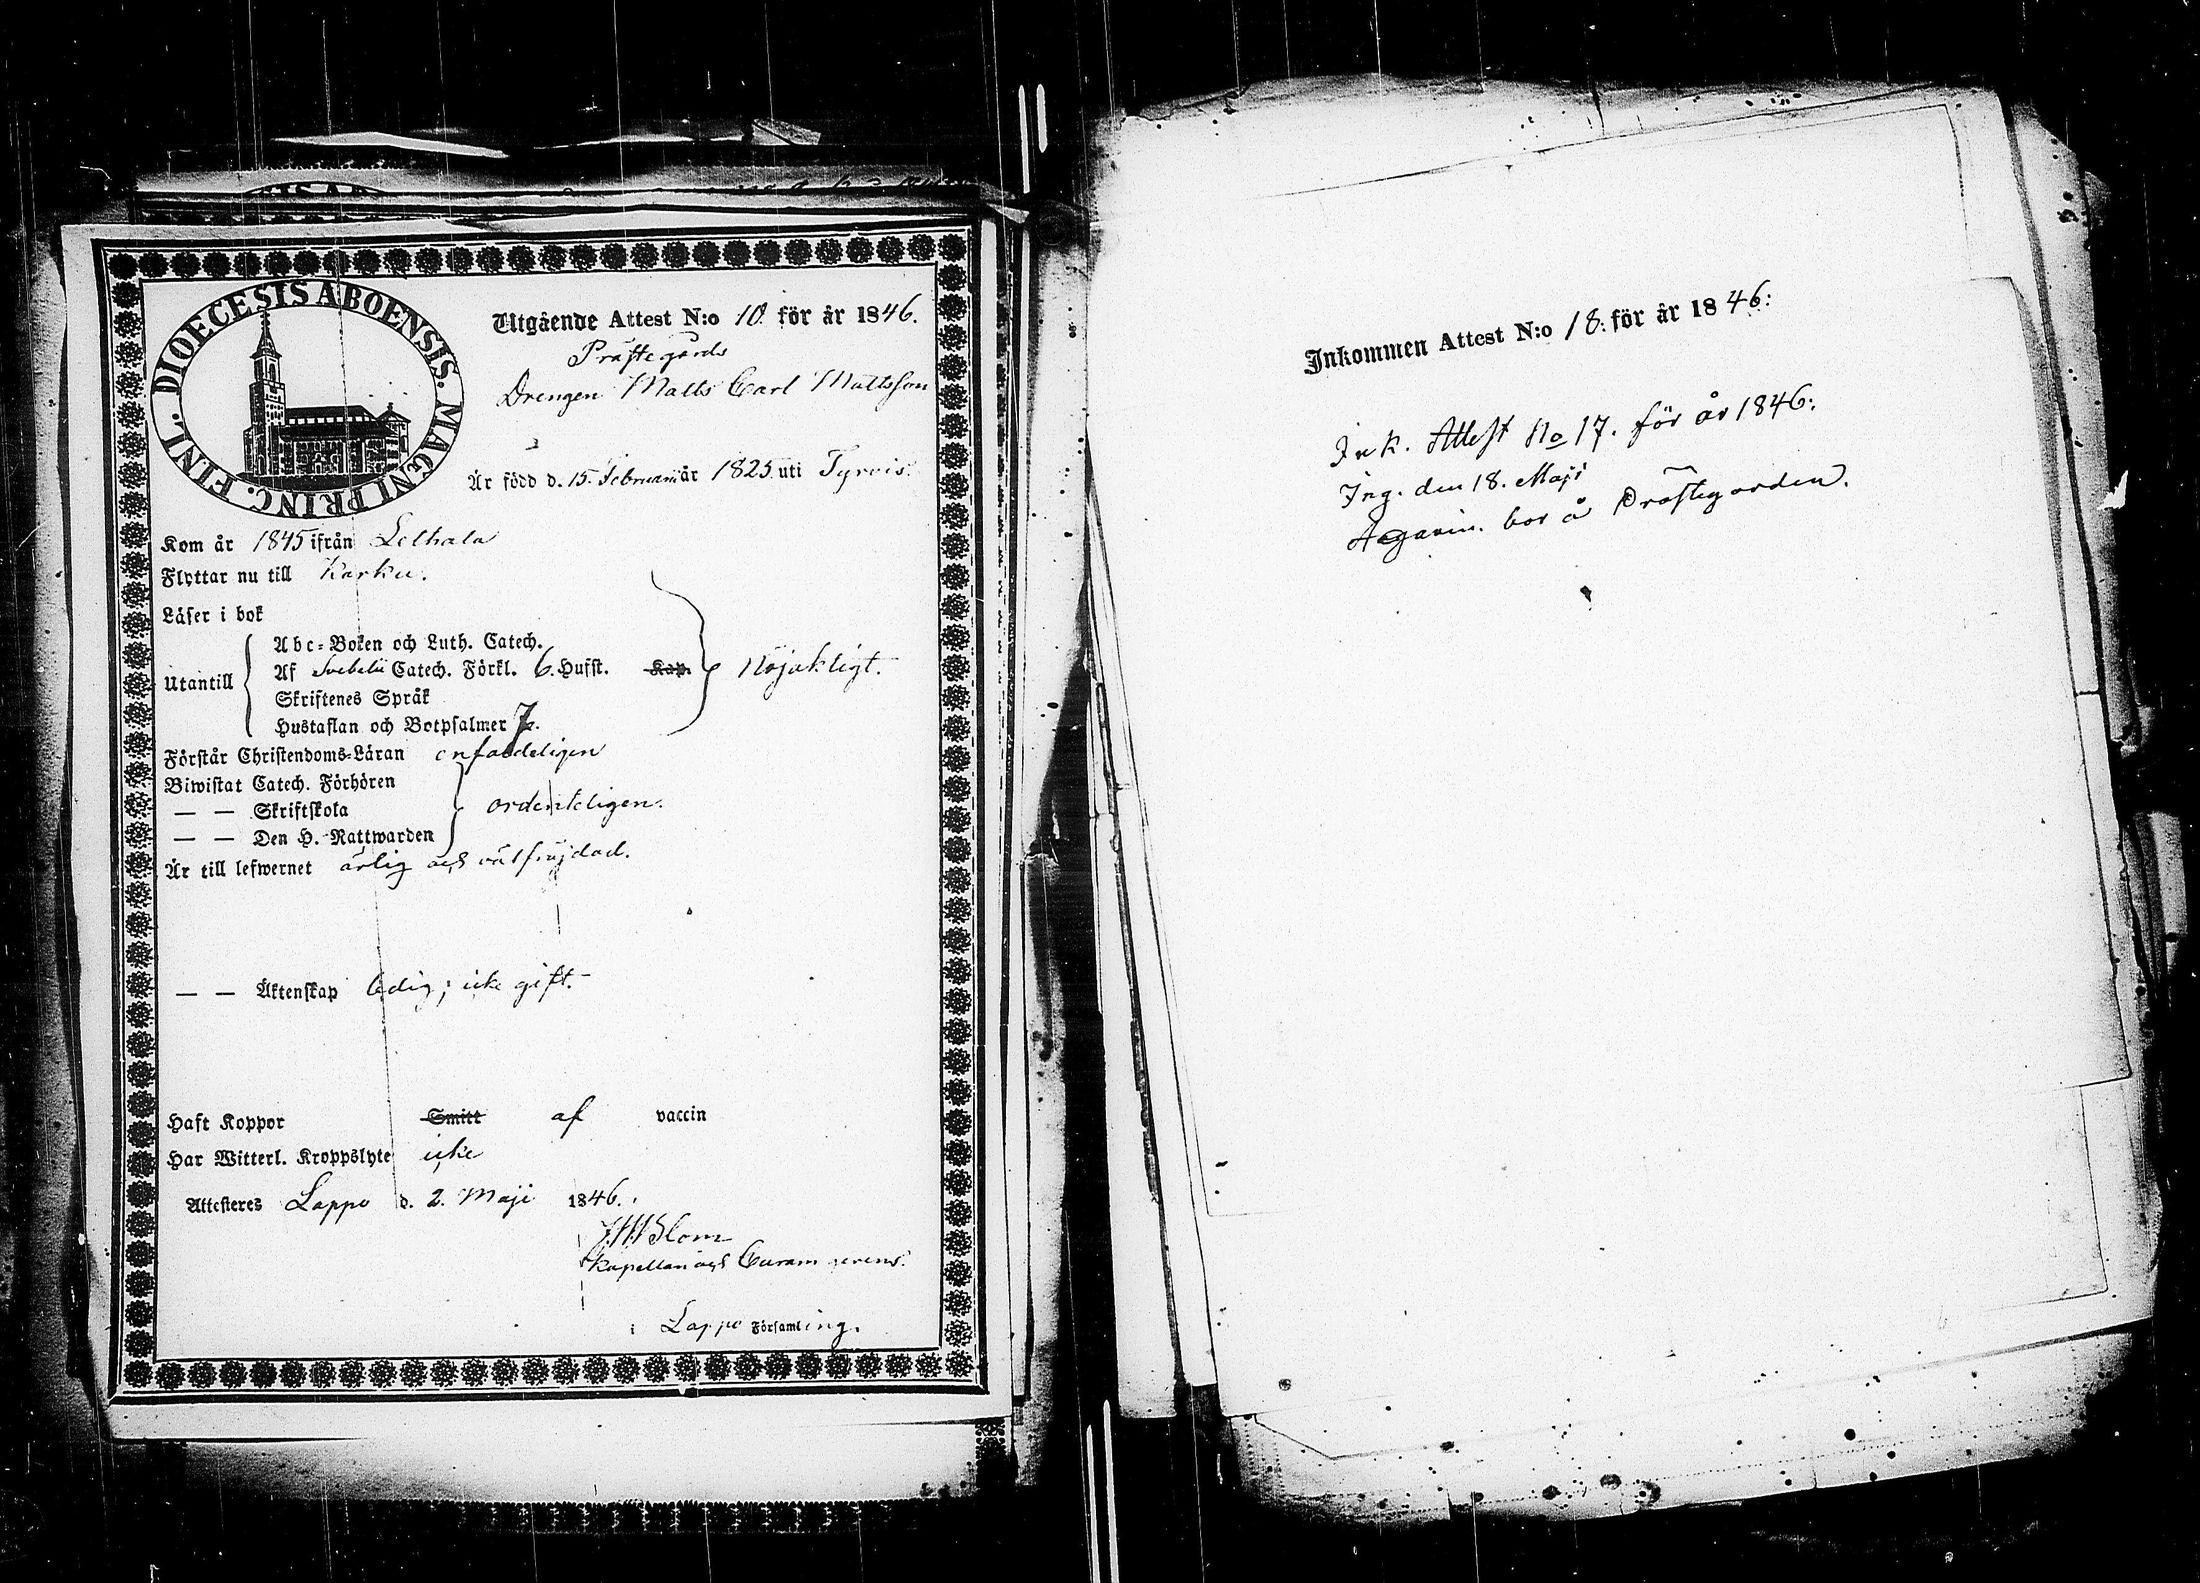 DIOECESIS ABOENSIS. MAGNI PRINC. FINL.
Utgående Attest N:o 10. för år 1846.
Prästegårds
Drengen Matts Carl Mattsson
Är född d. 15. Februari år 1825 uti Tyrvis.
Kom år 1845 ifrån Lethala
Flyttar nu till Karku.
Läser i bok
Utantill
Abc-Boken och Luth. Catech.
Af Svebelii Catech. Förkl. 6. Hufst. Kap.
Skriftenes Språk
Hustaflan och Botpsalmer 7.
Nöjaktigt.
Förstår Christendoms-Läran enfaldeligen
Biwistat Catech. Förhören
— — Skriftskola
— — Den H. Nattwarden
ordenteligen.
Är till lefwernet ärlig och välfrejdad.
— — Äktenskap ledig; icke gift.
Haft Koppor Smitt af vaccin
Har Witterl. Kroppslyte icke
Attesteres Lappo d. 2. Maji 1846.
Blom
Kapellan och Curam gerens.
i Lappo Församling.
Inkommen Attest N:o 18: för år 1846:
Ink. Attest No 17. för år 1846:
Ing. den 18. Maji
bor å Prästegården.